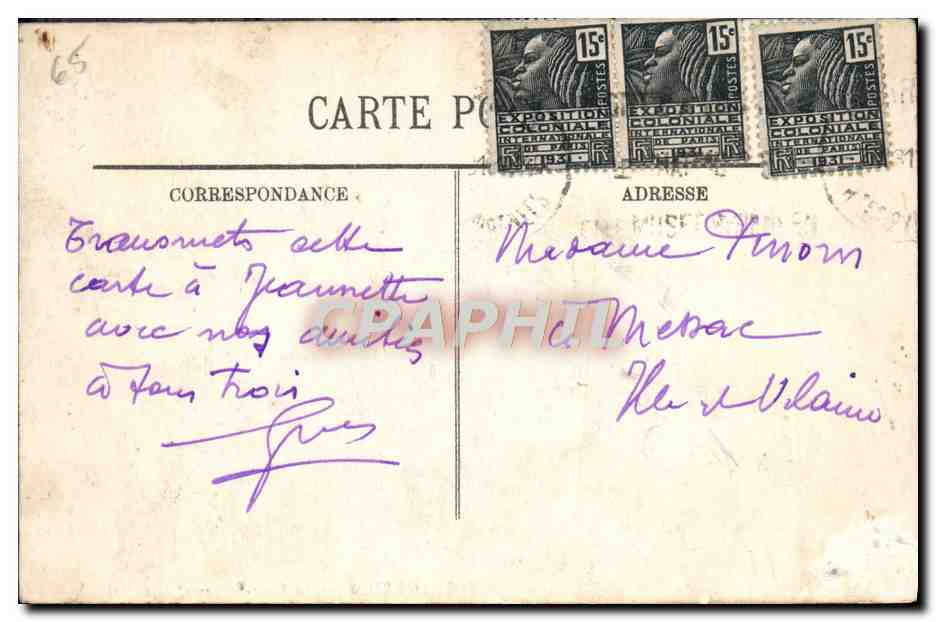 65
15c 15c 15c
POSTES POSTES POSTES
EXPOSITION EXPOSITION EXPOSITION
COLONIALE COLONIALE COLONIALE
INTERNATIONALE INTERNATIONALE INTERNATIONALE
DE PARIS DE PARIS DE PARIS
RF 1931 RF RF 1931 RF RF 1931 RF
CARTE PO
CORRESPONDANCE
ADRESSE
Transmets cette
carte à Jeannette
avec nos amitiés
à tous trois
Yves
Madame
à Messac
Ille et Vilaine
CPAPHIL